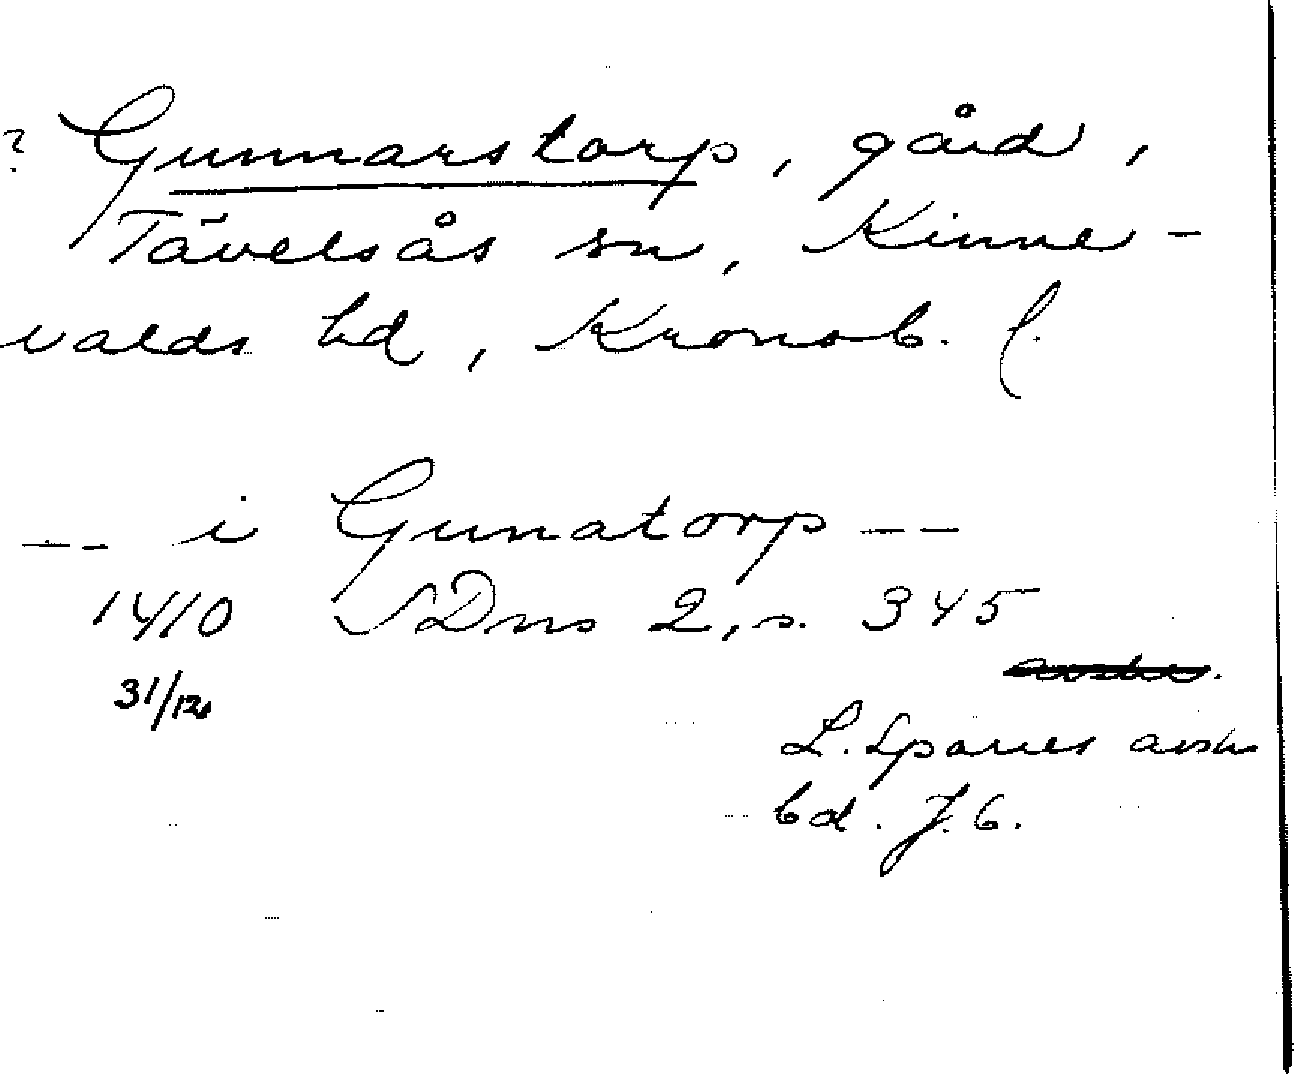 ? Gunnarstorp, gård,
Tävelsås sn, Kinne-
valds hd, Kronob. l.
-- i Gunatorp --
1410 SDns 2, s. 345
31/12
L. Sparres avskr
bd. J. 6.